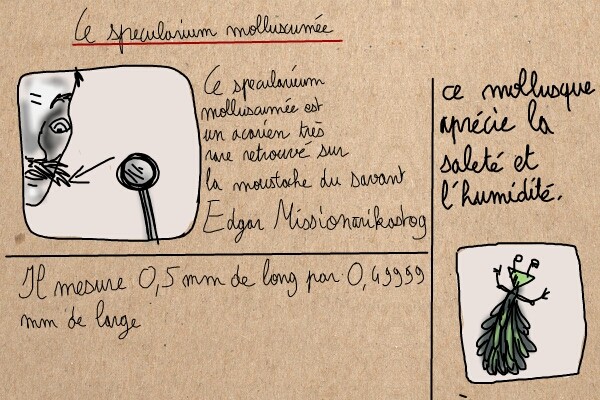 Ce specularium molluscumée
Ce specularium
molluscumée est
un acarien très
rare retrouvé sur
la moustache du savant
Edgar Missionarikastog
Il mesure 0,5 mm de long par 0,49999
mm de large
ce mollusque
aprécie la
saleté et
l'humidité.